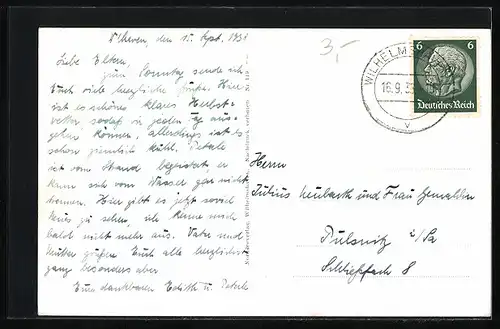 W'haven, den 15. Sept. 193
Liebe Eltern,
zum Sonntag sende ich
Euch viele herzliche Grüße. Hier
ist es schönes klares Herbst-
wetter sodaß wir jeden Tag aus-
gehen können, allerdings ist es
schon ziemlich kühl. Petole
ist vom Strand begeistert, er
kann sich vom Wasser gar nicht
trennen. Hier gibt es jetzt soviel
neues zu sehen, ich kenne mich
bald nicht mehr aus. Vater und
Mutter grüßen Euch alle herzlichst
ganz besonders aber
Eure dankbaren Edith u. Petole
3,-
WILHELMSHAVEN
16.9.3
v
6 6
Deutsches Reich
Herrn
Julius und Frau Gemahlin
Pulsnitz i/Sa
Schließfach 8